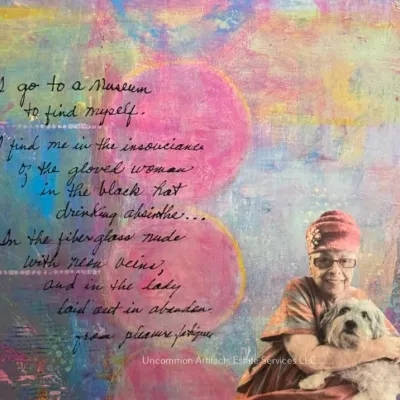 I go to a Museum
to find myself.
I find me in the insouciance
of the gloved woman
in the black hat
drinking absinthe...
In the fiberglass nude
with neon veins,
and in the lady
laid out in abandon
from pleasure, fatigue
Uncommon Artifacts Estate Services LLC